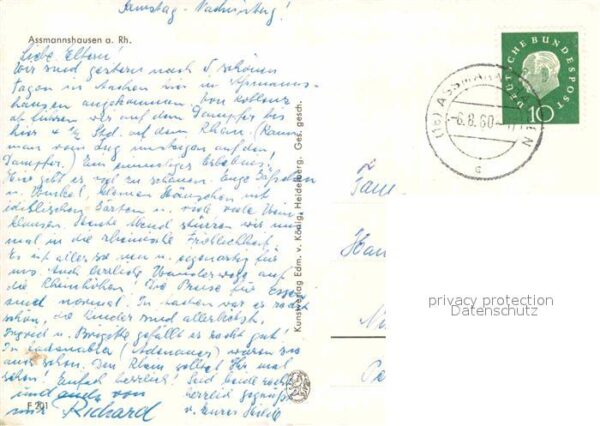 Samstag-Nachmittag!
Assmannshausen a. Rh.
Liebe Eltern!
Wir sind gestern nach 5 schönen
Tagen in Aachen hier in Assmanns-
hausen angekommen. Von Koblenz
ab fuhren wir auf dem Dampfer bis
hier 4 ½ Std. auf dem Rhein. (Kann
man vom Zug umsteigen auf den
Dampfer.) Ein einmaliges Erlebnis!
Hier gibt es viel zu schauen. Enge Gäßchen
u. Winkel, kleinen Häuschen mit
idyllischen Gärten u. viele viele Wein-
klausen. Heute Abend stürzen wir uns
mal in die rheinische Fröhlichkeit.
Es ist alles so neu u. eigenartig für
uns. Auch herrliche Wanderwege auf
die Rheinhöhen! Die Preise für Essen
sind normal. In Aachen war es recht
schön, die Kinder sind allerliebst.
Ingrid u. Brigitte gefällt es recht gut!
In (Adenauer) waren wir
auch schon. Den Rhein solltet Ihr mal
sehen! Einfach herrlich! Seid beide recht
herzlich gegrüßt
und auch von
mir Richard
v. Eurer Hilde
F 201
Kunstverlag Edm. v. König, Heidelberg. Ges. gesch.
DEUTSCHE BUNDESPOST
10
(16) ASSMANNSHAUSEN
-6.8.60-
c
Fam
Han
privacy protection
Datenschutz